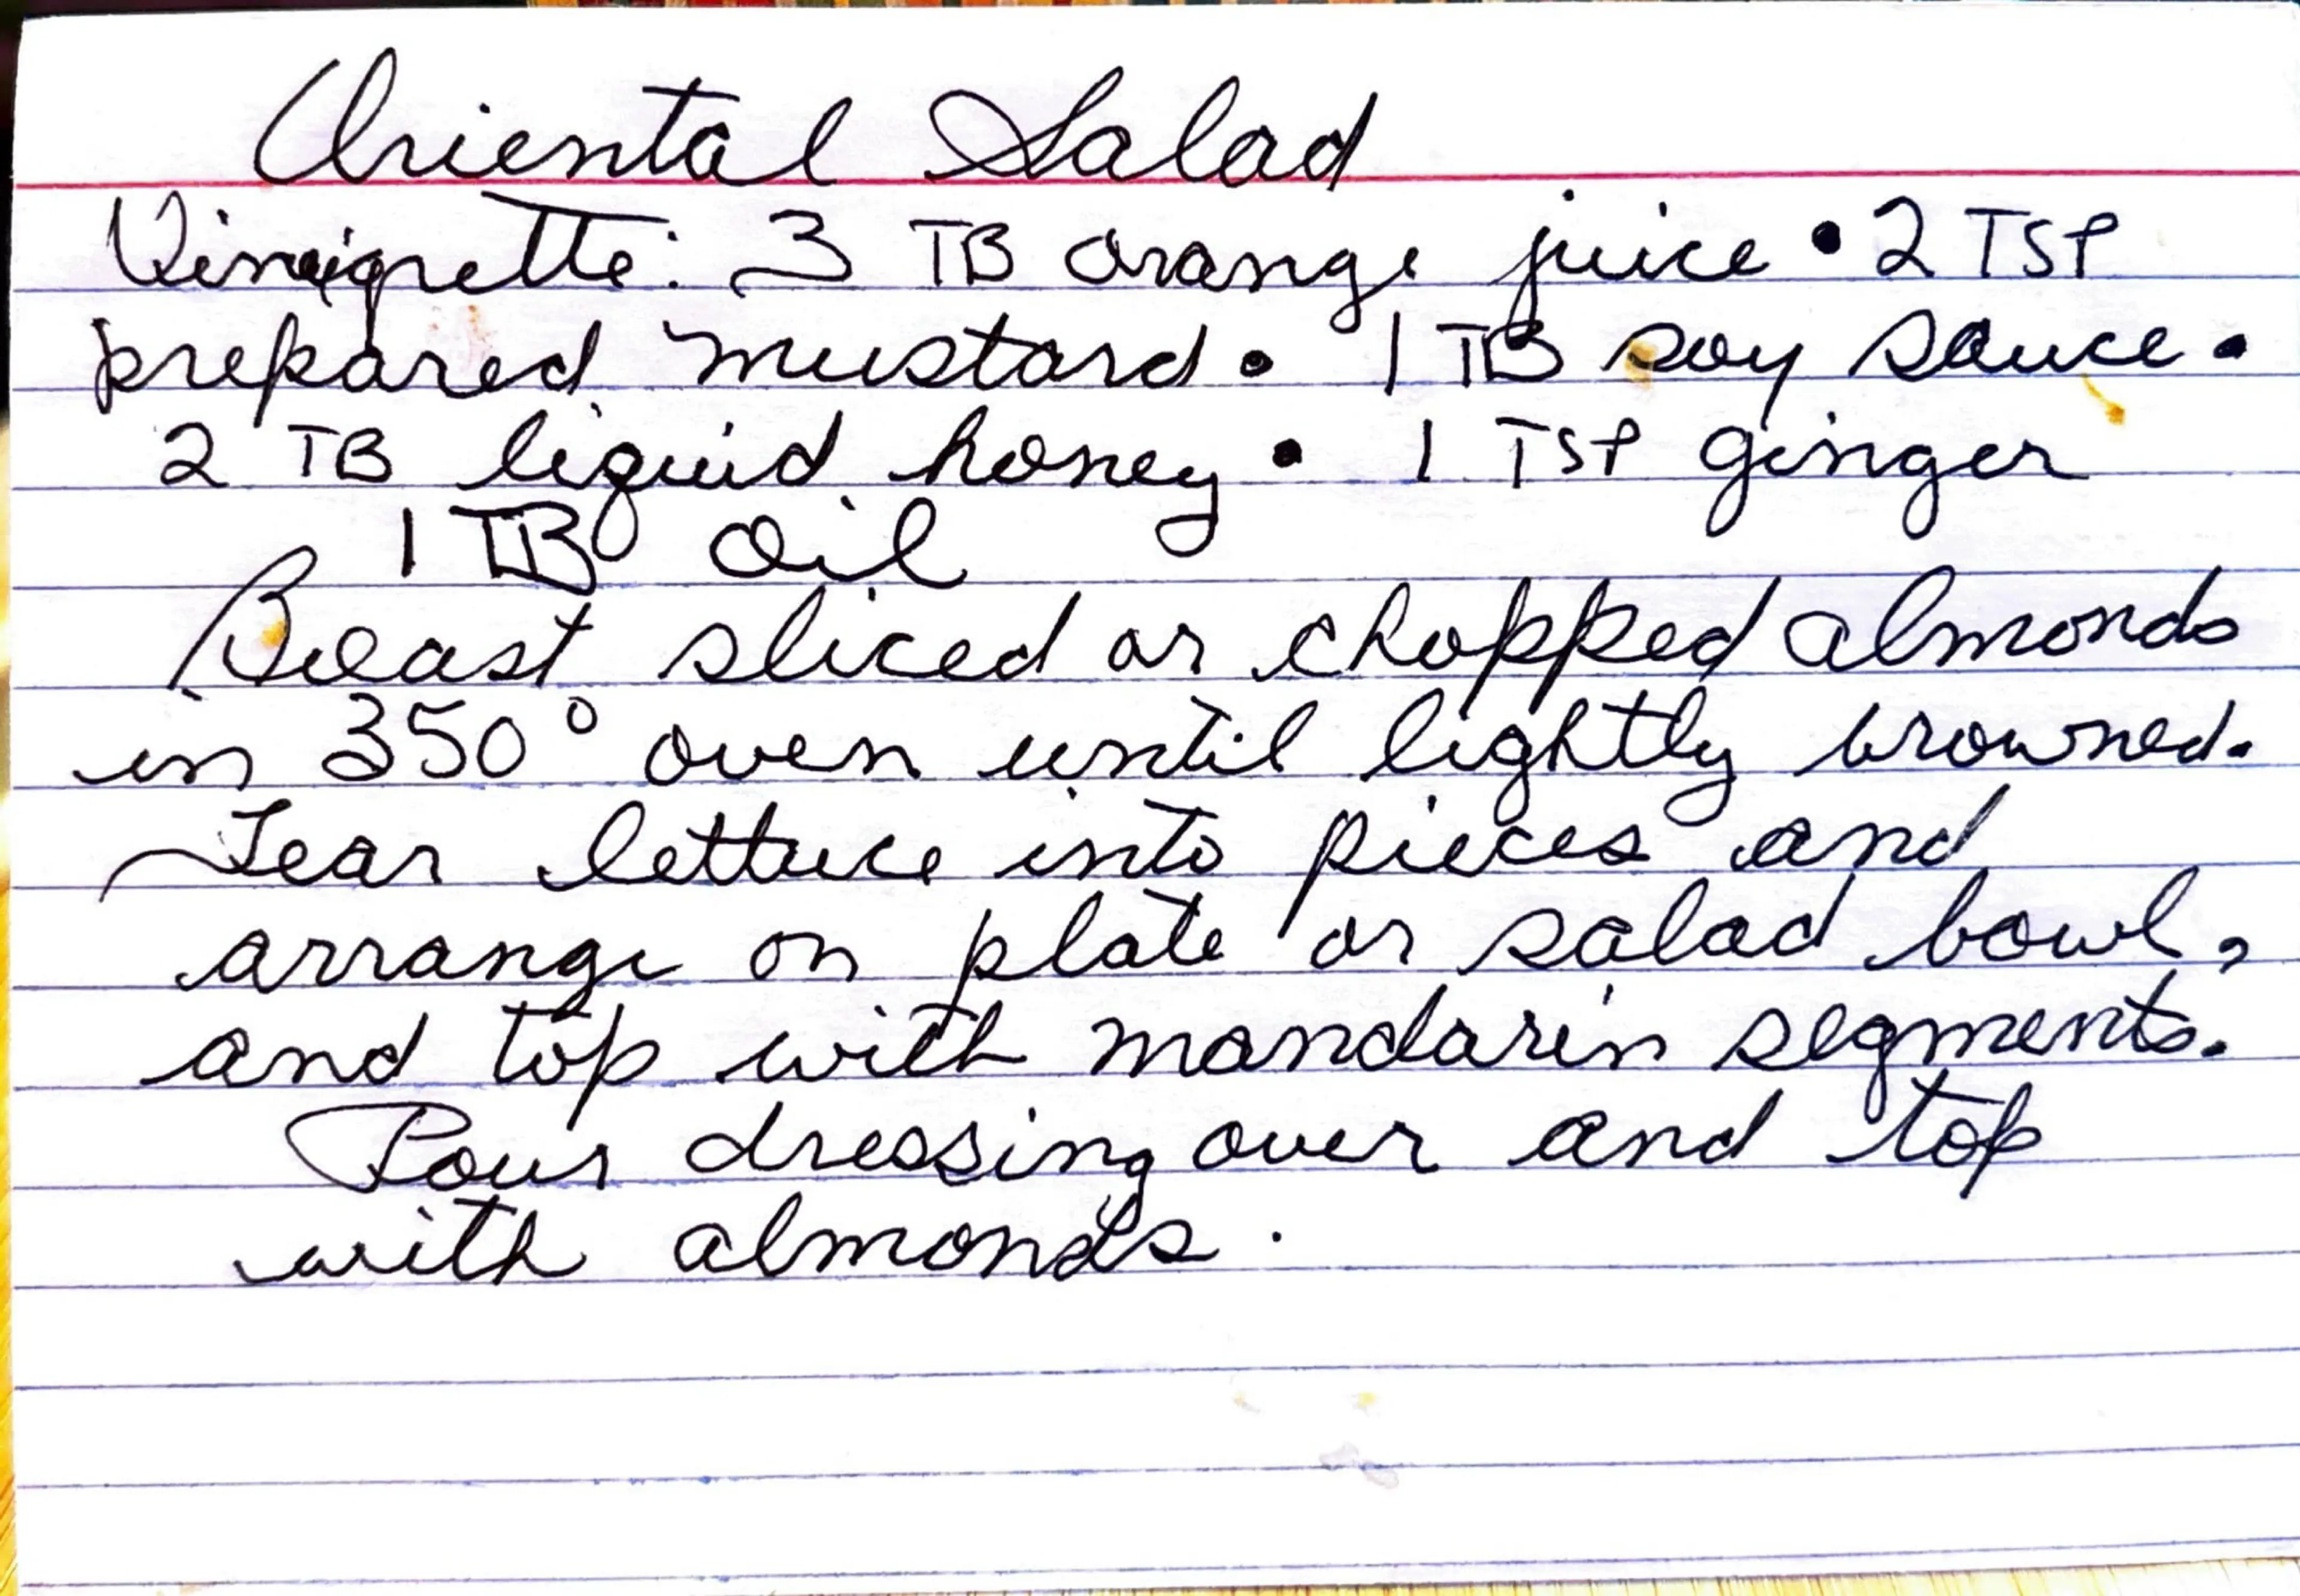 Oriental Salad
Vinaigrette: 3 TB orange juice • 2 TSP
prepared mustard • 1 TB soy sauce •
2 TB liquid honey • 1 TSP ginger
1 TB oil
Roast sliced or chopped almonds
in 350° oven until lightly browned.
Tear lettuce into pieces and
arrange on plate or salad bowl,
and top with mandarin segments.
Pour dressing over and top
with almonds.